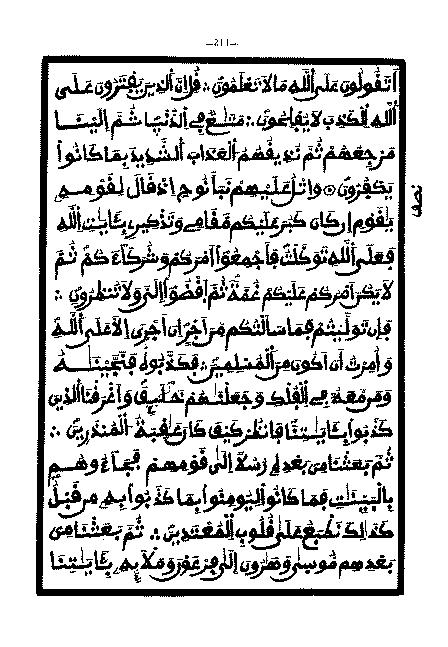 —211—
أَتَقُولُونَ عَلَى اَللَّهِ مَا لَا تَعْلَمُونَ ∴ قُلِ اِنَّ اَلذِينَ يَفْتَرُونَ عَلَى
اَللَّهِ اِلْكَذِبَ لَا يُفْلِحُونَ ∴ مَتَٰعٌ فِي اِلدُّنْيَا ثُمَّ إِلَيْنَا
مَرْجِعُهُمْ ثُمَّ نُذِيقُهُمُ اُلْعَذَابَ اَلشَّدِيدَ بِمَا كَانُوا
يَكْفُرُونَ ۝ وَاتْلُ عَلَيْهِمْ نَبَأَ نُوحٍ اِذْ قَالَ لِقَوْمِهِ
يَٰقَوْمِ إِن كَانَ كَبُرَ عَلَيْكُم مَّقَامِي وَتَذْكِيرِي بِـَٔايَٰتِ اِللَّهِ
فَعَلَى اَللَّهِ تَوَكَّلْتُ فَأَجْمِعُوا أَمْرَكُمْ وَشُرَكَاءَكُمْ ثُمَّ
لَا يَكُنَ اَمْرُكُمْ عَلَيْكُمْ غُمَّةً ثُمَّ اَقْضُوا إِلَيَّ وَلَا تُنظِرُونِ ∴
فَإِن تَوَلَّيْتُمْ فَمَا سَأَلْتُكُم مِّنَ اَجْرٍ اِنَ اَجْرِيَ إِلَّا عَلَى اَللَّهِ
وَأُمِرْتُ أَنَ اَكُونَ مِنَ اَلْمُسْلِمِينَ ∴ فَكَذَّبُوهُ فَنَجَّيْنَٰهُ
وَمَن مَّعَهُ فِي اِلْفُلْكِ وَجَعَلْنَٰهُمْ خَلَٰٓئِفَ وَأَغْرَقْنَا اَلذِينَ
كَذَّبُوا بِـَٔايَٰتِنَا فَانظُرْ كَيْفَ كَانَ عَٰقِبَةُ اُلْمُنذَرِينَ ∴
ثُمَّ بَعَثْنَا مِن بَعْدِهِ رُسُلاً اِلَىٰ قَوْمِهِمْ فَجَاءُوهُم
بِالْبَيِّنَٰتِ فَمَا كَانُوا لِيُومِنُوا بِمَا كَذَّبُوا بِهِ مِن قَبْلُ
كَذَٰلِكَ نَطْبَعُ عَلَىٰ قُلُوبِ اِلْمُعْتَدِينَ ∴ ثُمَّ بَعَثْنَا مِن
بَعْدِهِم مُّوسَىٰ وَهَٰرُونَ إِلَىٰ فِرْعَوْنَ وَمَلَإِيْهِ بِـَٔايَٰتِنَا
نصف